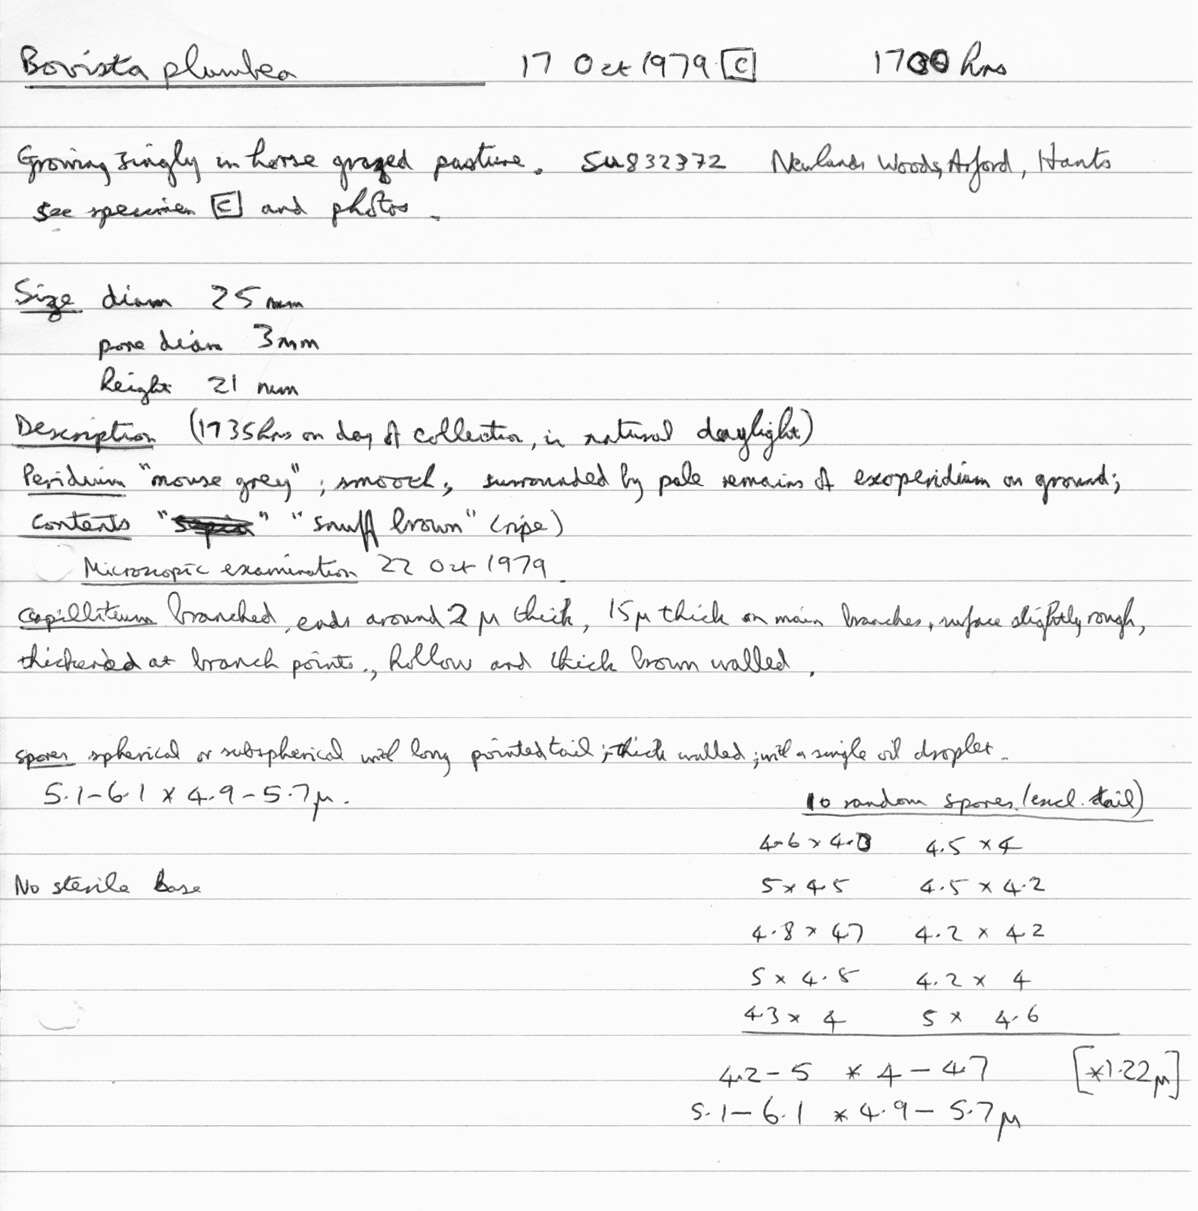 Bovista plumbea 17 Oct 1979 [C] 1700 hrs
Growing singly in horse grazed pasture. SU832372 Newlands Woods, Arford, Hants
See specimen [C] and photos.
Size diam 25 mm
pore diam 3mm
height 21 mm
Description (1735hrs on day of collection, in natural daylight)
Peridium "mouse grey"; smooth; surrounded by pale remains of exoperidium on ground;
Contents "snuff brown" (ripe)
Microscopic examination 22 Oct 1979.
Capillitium branched, ends around 2 µ thick, 15µ thick on main branches, surface slightly rough,
thickened at branch points., hollow and thick brown walled.
Spores spherical or subspherical with long pointed tail; thick walled; with a single oil droplet.
5.1-6.1 x 4.9-5.7µ.
10 random spores (excl. tail)
4.6 x 4.3 4.5 x 4
No sterile base
5 x 4.5 4.5 x 4.2
4.8 x 4.7 4.2 x 4.2
5 x 4.5 4.2 x 4
4.3 x 4 5 x 4.6
4.2-5 x 4-4.7 [x1.22µ]
5.1-6.1 x 4.9-5.7µ